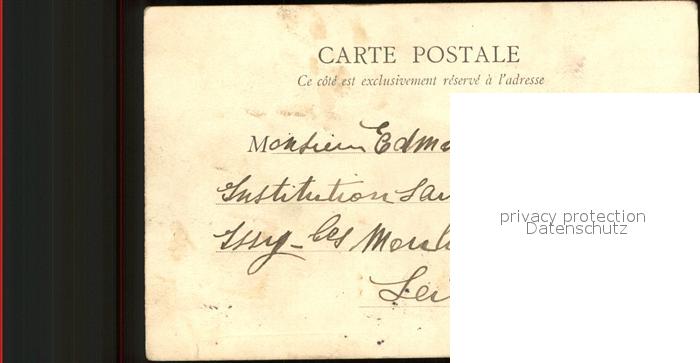 CARTE POSTALE
Ce côté est exclusivement réservé à l'adresse
Monsieur Edmo
Institution Sai
Issy-les Moul
Sei
privacy protection
Datenschutz